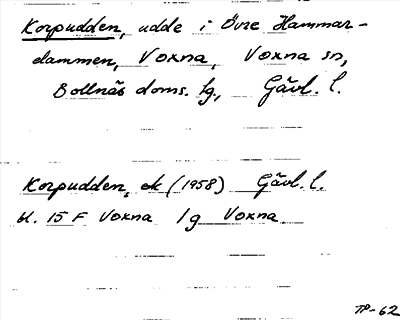 Korpudden, udde i Övre Hammar-
dammen, Voxna, Voxna sn,
Bollnäs doms. lg., Gävl. l.
Korpudden, ek (1958) Gävl. l.
bl. 15 F Voxna lg Voxna
TP-62